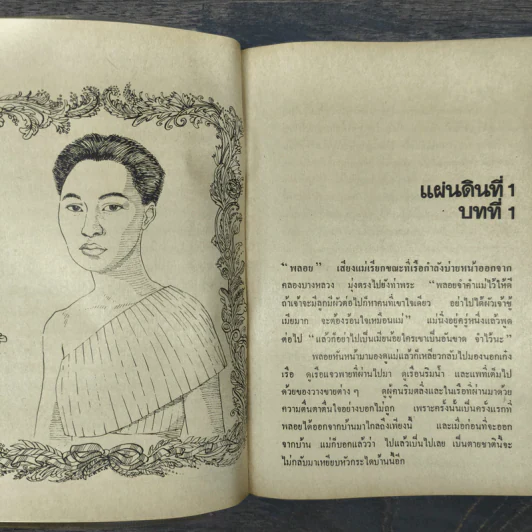 แผ่นดินที่ 1
บทที่ 1
“พลอย” เสียงแม่เรียกขณะที่เรือกำลังบ่ายหน้าออกจาก
คลองบางหลวง มุ่งตรงไปยังท่าพระ “พลอยจำคำแม่ไว้ให้ดี
ถ้าเจ้าจะมีลูกมีผัวต่อไปก็หาคนที่เขาใจเดียว อย่าไปได้ผัวเจ้าชู้
เมียมาก จะต้องร้อนใจเหมือนแม่” แม่นิ่งอยู่ครู่หนึ่งแล้วพูด
ต่อไป “แล้วก็อย่าไปเป็นเมียน้อยใครเขาเป็นอันขาด จำไว้นะ”
พลอยหันหน้ามามองดูแม่แล้วก็เหลียวกลับไปมองนอกเก๋ง
เรือ ดูเรือแจวพายที่ผ่านไปมา ดูเรือนริมน้ำ และแพที่เต็มไป
ด้วยของวางขายต่าง ๆ ดูผู้คนริมตลิ่งและในเรือที่ผ่านมาด้วย
ความตื่นตาตื่นใจอย่างบอกไม่ถูก เพราะครั้งนั้นเป็นครั้งแรกที่
พลอยได้ออกจากบ้านมาไกลถึงเพียงนี้ และเมื่อก่อนที่จะออก
จากบ้าน แม่ก็บอกแล้วว่า ไปแล้วเป็นไปเลย เป็นตายชาตินี้จะ
ไม่กลับมาเหยียบหัวกระไดบ้านนี้อีก